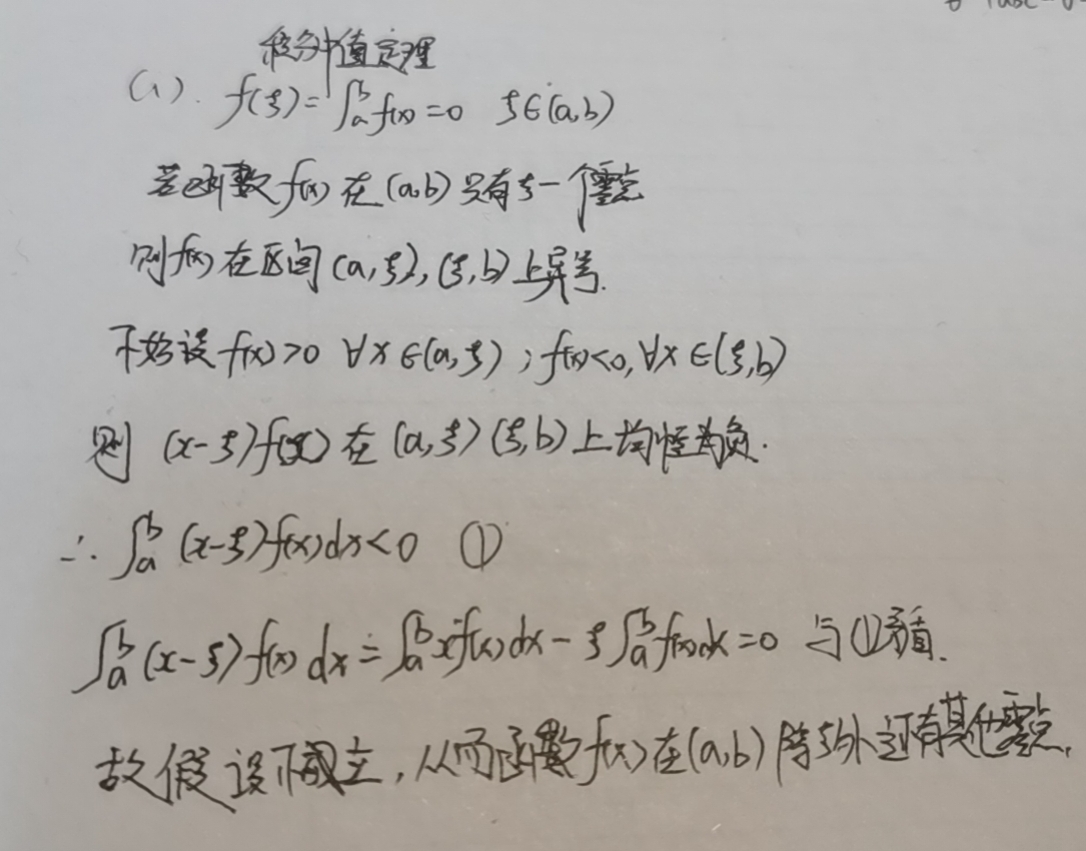 积分中值定理
(1). f(ξ)=∫ₐᵇf(x)=0 ξ∈(a,b)
若函数f(x)在(a,b)只有ξ一个零点
则f(x)在区间(a,ξ),(ξ,b)上异号.
不妨设f(x)>0 ∀x∈(a,ξ);f(x)<0,∀x∈(ξ,b)
则 (x-ξ)f(x)在(a,ξ)(ξ,b)上均恒为负.
∴∫ₐᵇ(x-ξ)f(x)dx<0 ①
∫ₐᵇ(x-ξ)f(x)dx=∫ₐᵇxf(x)dx-ξ∫ₐᵇf(x)dx=0 与①矛盾.
故假设不成立,从而函数f(x)在(a,b)除ξ外还有其他零点.